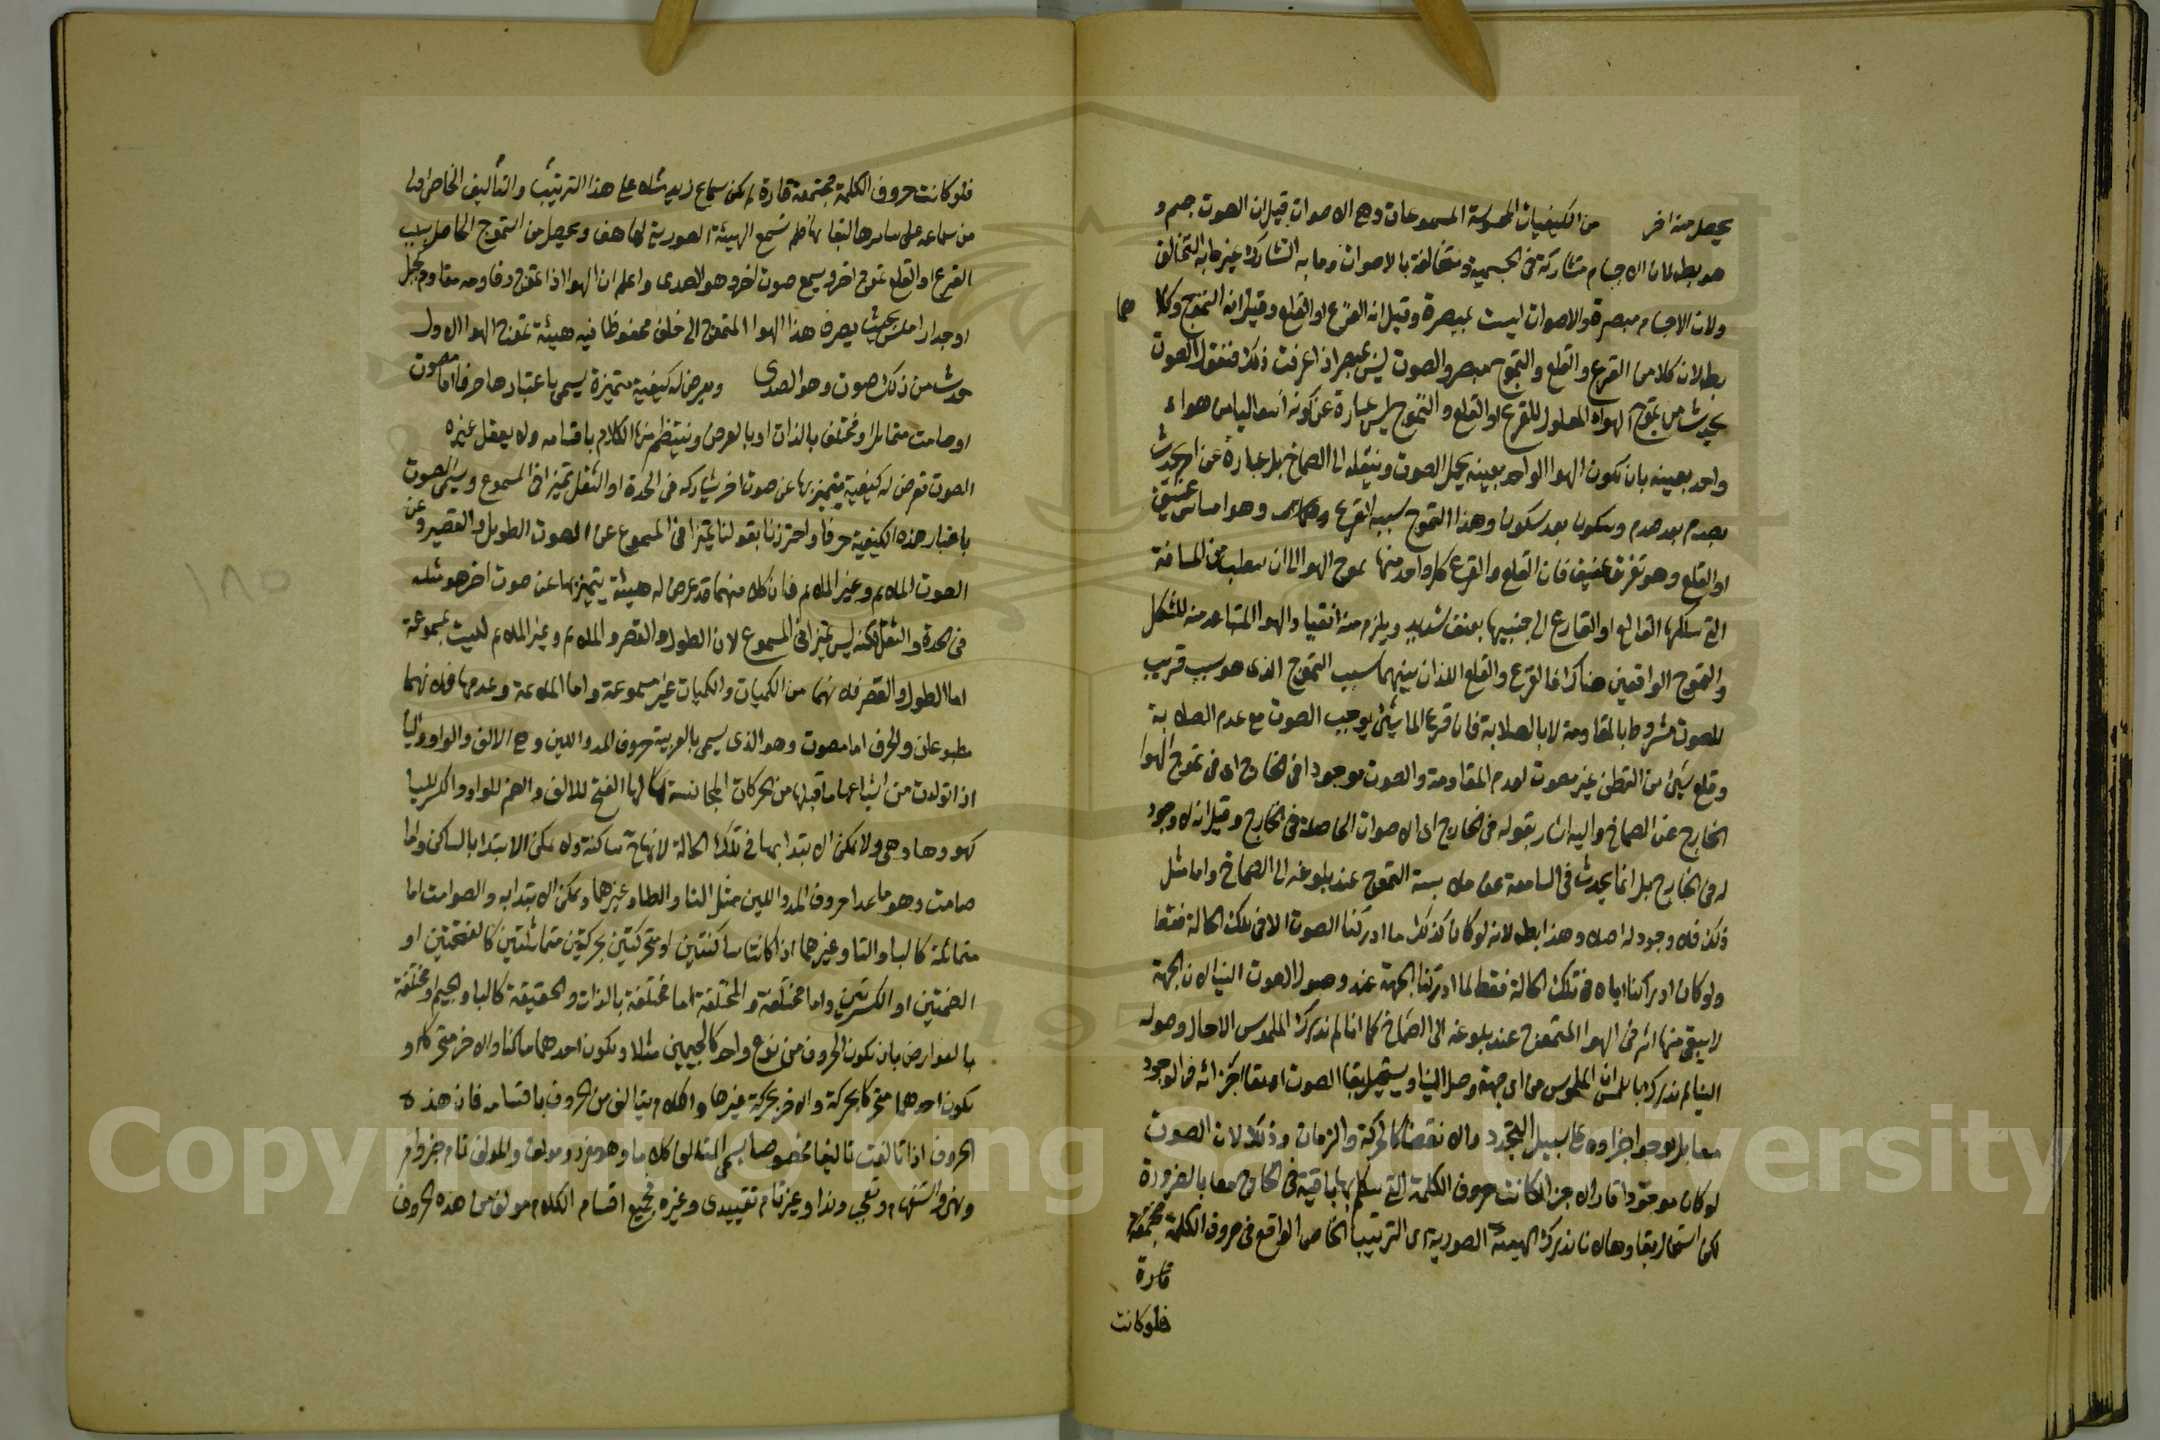 يحصل منه اخر من الكيفيات المحسوسة المسموعات وهي الاصوات قيل ان الصوت جسم و
هو بط لان الاجسام متشاركة في الجسمية ومتخالفة بالاصوات وما به التشارك غير ما به التخالف
ولان الاجسام مبصرة والاصوات ليست بمبصرة وقيل انه القرع او القلع وقيل انه التموج وكلا هما
بطلان كلا من القرع والقلع والتموج مبصر والصوت ليس بمبصر اذا عرفت ذلك فنقول الصوت
يحدث من تموج الهواء المعلول للقرع او القلع والتموج ليس عبارة عن كونه انتقاليا من هواء
واحد بعينه بان يكون الهوا الواحد بعينه يحمل الصوت وينقله الى الصماخ بل عبارة عن امر يحدث
بصدم بعد صدم وسكون بعد سكون وهذا التموج سببه القرع وهو امساس عنيف
او القلع وهو تفريق عنيف فان القلع والقرع كل واحد منهما يموج الهوا الى ان من المسافة
التي سلكها القالع او القارع الى جنبيها بعنف شديد ويلزم منه انقياد الهوا المتباعد منه للشكل
والتموج الواقعين هناك اذا القرع والقلع اللذان بينهما سبب التموج الذي هو سبب قريب
للصوت مشروط بالمقاومة لا بالصلابة فان قرع الما بشئ يوجب الصوت مع عدم الصلابة
وقلع شئ من القطن غير مصوت لعدم المقاومة والصوت موجود في الخارج اي في تموج الهوا
الخارج عن الصماخ واليه اشار بقوله في الخارج اي الاصوات الحاصلة في الخارج وقيل انه لا وجود
له في الخارج بل انما يحدث في السامعة عن ملامسة التموج عند بلوغه الى الصماخ واما مثل
ذلك فلا وجود له اصلا وهذا بط لانه لو كان كذلك ما ادركنا الصوت الا في تلك الحالة فقط
ولو كان ادراكنا اياه في تلك الحالة فقط لما ادركنا الجهة عند وصول الصوت الينا لان الجهة
لا يبقى منها اثر في الهوا المتموج عند بلوغه الى الصماخ كما انا لم ندرك الملموس الا حال وصوله
الينا لم ندرك باللمس ان الملموس من اي جهة وصل الينا ويستحيل بقا الصوت اي بقا اجزائه في الوجود
معا بل يوجد اجزاوه على سبيل التجدد والانقضا كالحركة والزمان وذلك لان الصوت
لو كان موجودا قار الاجزا لكانت حروف الكلمة التي تتكلم بها باقية في الخارج معا بالضرورة
لكن استحال بقاوها لانا ندرك الهيئة الصورية اي الترتيب الخاص الواقع في حروف الكلمة مجتمعة
قارة
فلو كانت
فلو كانت حروف الكلمة مجتمعة قارة لم يكن سماع زيد مثلا على هذا الترتيب والتأليف الخاص اولى
من سماعه على سائرها لبقائها فلم تسمع الهيئة الصورية لها هف ويحصل من التموج الحاصل بسبب
القرع او القلع تموج اخر ويسمع صوت اخر وهو الصدى واعلم ان الهوا اذا تموج وقاومه مقاوم كجبل
او جدار املس بحيث يصرف هذا الهوا المتموج الى خلف محفوظا فيه هيئة تموج الهوا الاول
حدث من ذلك صوت وهو الصدى ويعرض له كيفية متميزة يسمى باعتبارها حرفا اما مصوت
او صامت متماثل او مختلف بالذات او بالعرض وينتظم منها الكلام باقسامه ولا يعقل غيره
الصوت تعرض له كيفية يتميز بها عن صوت اخر يشاركه في الحدة او الثقل تميزا في المسموع ويسمى الصوت
باعتبار هذه الكيفية حرفا واحترزنا بقولنا تميزا في المسموع عن الصوت الطويل والقصير وعن
الصوت الملائم وغير الملائم فان كلا منهما قد عرض له هيئة يتميز بها عن صوت اخر هو مثله
في الحدة والثقل لكنه ليس تميزا في المسموع لان الطول والقصر والملائم وغير الملائم ليست بمسموعة
اما الطول والقصر فلانهما من الكميات والكميات غير مسموعة واما الملائمة وعدمها فلانهما
مطبوعان والحرف اما مصوت وهو الذي يسمى بالعربية حروف المد واللين وهي الالف والواو واليا
اذا تولدت من اشباع ما قبلها من الحركات المجانسة لها الفتح للالف والضم للواو والكسر لليا
كهو وها وهي ولا يمكن الابتدا بها في تلك الحالة لانها ح ساكنة ولا يمكن الابتدا بالساكن واما
صامت وهو ما عدا حروف المد واللين مثل التا والطا وغيرها ويمكن الابتدا به والصوامت اما
متماثلة كالبا والتا وغيرهما اذا كانتا ساكنتين او متحركتين بحركتين متماثلتين كالفتحتين او
الضمتين او الكسرتين واما مختلفة والمختلفة اما مختلفة بالذات والحقيقة كالبا والجيم او مختلفة
بالعوارض بان يكون الحروف من نوع واحد كالجيمين مثلا ويكون احدهما ساكنا والاخر متحركا او
يكون احدهما متحركا بحركة والاخر بحركة غيرها والكلام يتالف من الحروف باقسامه فان هذه
الحروف اذا تالفت تاليفا مخصوصا يسمى المتالف كلاما وهو مفرد ومولف والمولف تام خبر وامر
ونهي واستفهام وتعجب وندا وغير تام تقييدي وغيره فجميع اقسام الكلام مولف من هذه الحروف
١٨٥
Copyright © King Saud University